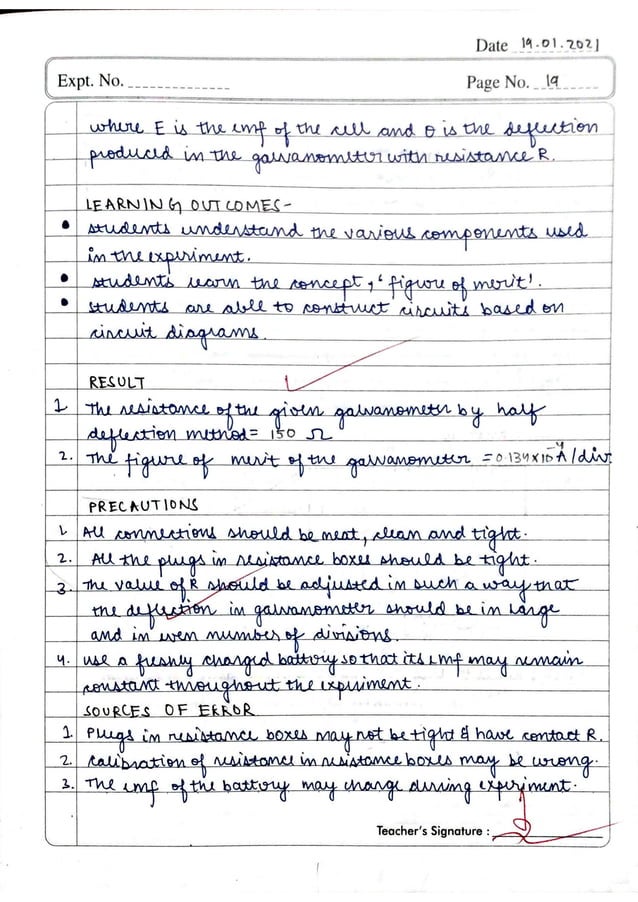 Date 19.01.2021
Expt. No.
Page No. 19
where E is the emf of the cell and θ is the deflection
produced in the galvanometer with resistance R.
LEARNING OUTCOMES-
• students understand the various components used
in the experiment.
• students learn the concept, 'figure of merit'.
• students are able to construct circuits based on
circuit diagrams.
RESULT
1. The resistance of the given galvanometer by half
deflection method = 150 Ω
2. The figure of merit of the galvanometer = 0.134×10⁻⁴A/div.
PRECAUTIONS
1. All connections should be neat, clean and tight.
2. All the plugs in resistance boxes should be tight.
3. The value of R should be adjusted in such a way that
the deflection in galvanometer should be in large
and in even number of divisions.
4. use a freshly charged battery so that its emf may remain
constant throughout the experiment.
SOURCES OF ERROR
1. Plugs in resistance boxes may not be tight & have contact R.
2. Calibration of resistance in resistance boxes may be wrong.
3. The emf of the battery may change during experiment.
Teacher's Signature :